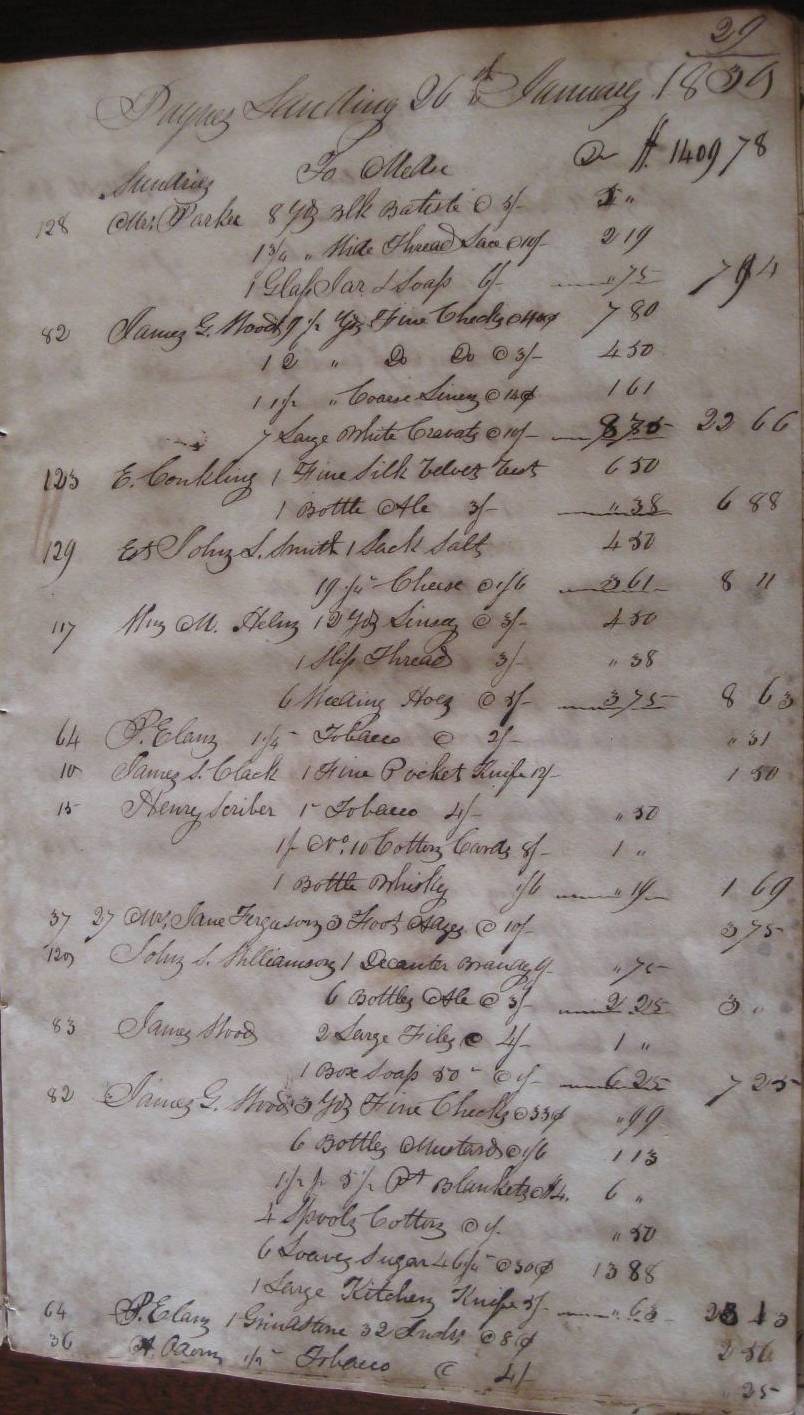 29
Paynes Landing 26th January 1839
Sundries To Mdse Dr $ 1409 78
128 Mrs Parker 8 Yds Blk Batiste @ 5/- 5 "
1 3/4 " Wide Thread Lace @ 10/- 2 19
1 Glass Jar & Soap 6/- " 75 7 94
82 James G. Woods 19 1/2 Yds Fine Checks @ 40¢ 7 80
12 " Do Do @ 3/- 4 50
11 1/2 " Coarse Linen @ 14¢ 1 61
7 Large White Cravats @ 10/- 8 75 22 66
123 E. Conkling 1 Fine Silk Velvet Vest 6 50
1 Bottle Ale 3/- " 38 6 88
129 John L. Smith 1 Sack Salt 4 50
19 1/4 " Cheese @ 1/6 3 61 8 11
117 Wm M. Helm 12 Yds Linsey @ 3/- 4 50
1 Slip Thread 3/- " 38
6 Weeding Hoes @ 5/- 3 75 8 63
64 P. Elam 1 1/4 " Tobacco @ 2/- " 31
10 James S. Clack 1 Fine Pocket Knife 12/- 1 50
15 Henry Scriber 1 " Tobacco 4/- " 50
1 pr No. 10 Cotton Cards 8/- 1 "
1 Bottle Whisky 1/6 " 19 1 69
37 27 Mrs Jane Ferguson 3 Foot @ 10/- 3 75
John S. Williamson 1 Decanter Brandy 6/- " 75
6 Bottles Ale @ 3/- 2 25 3 "
83 James Wood 2 Large Files @ 4/- 1 "
1 Box Soap 50 " @ 1/- 6 25 7 25
82 James G. Woods 3 Yds Fine Checks @ 33¢ " 99
6 Bottles Mustard @ 1/6 1 13
1 1/2 pr 3 1/2 Pt Blankets @ $4. 6 "
4 Spools Cotton @ 1/. " 50
6 Loaves Sugar 46 1/4 " @ 30¢ 13 88
1 Large Kitchen Knife 5/- " 63 23 13
64 P. Elam 1 Grindstone 32 Inches @ 8¢ 2 56
36 A. Odom 1/2 " Tobacco @ 4/- " 25